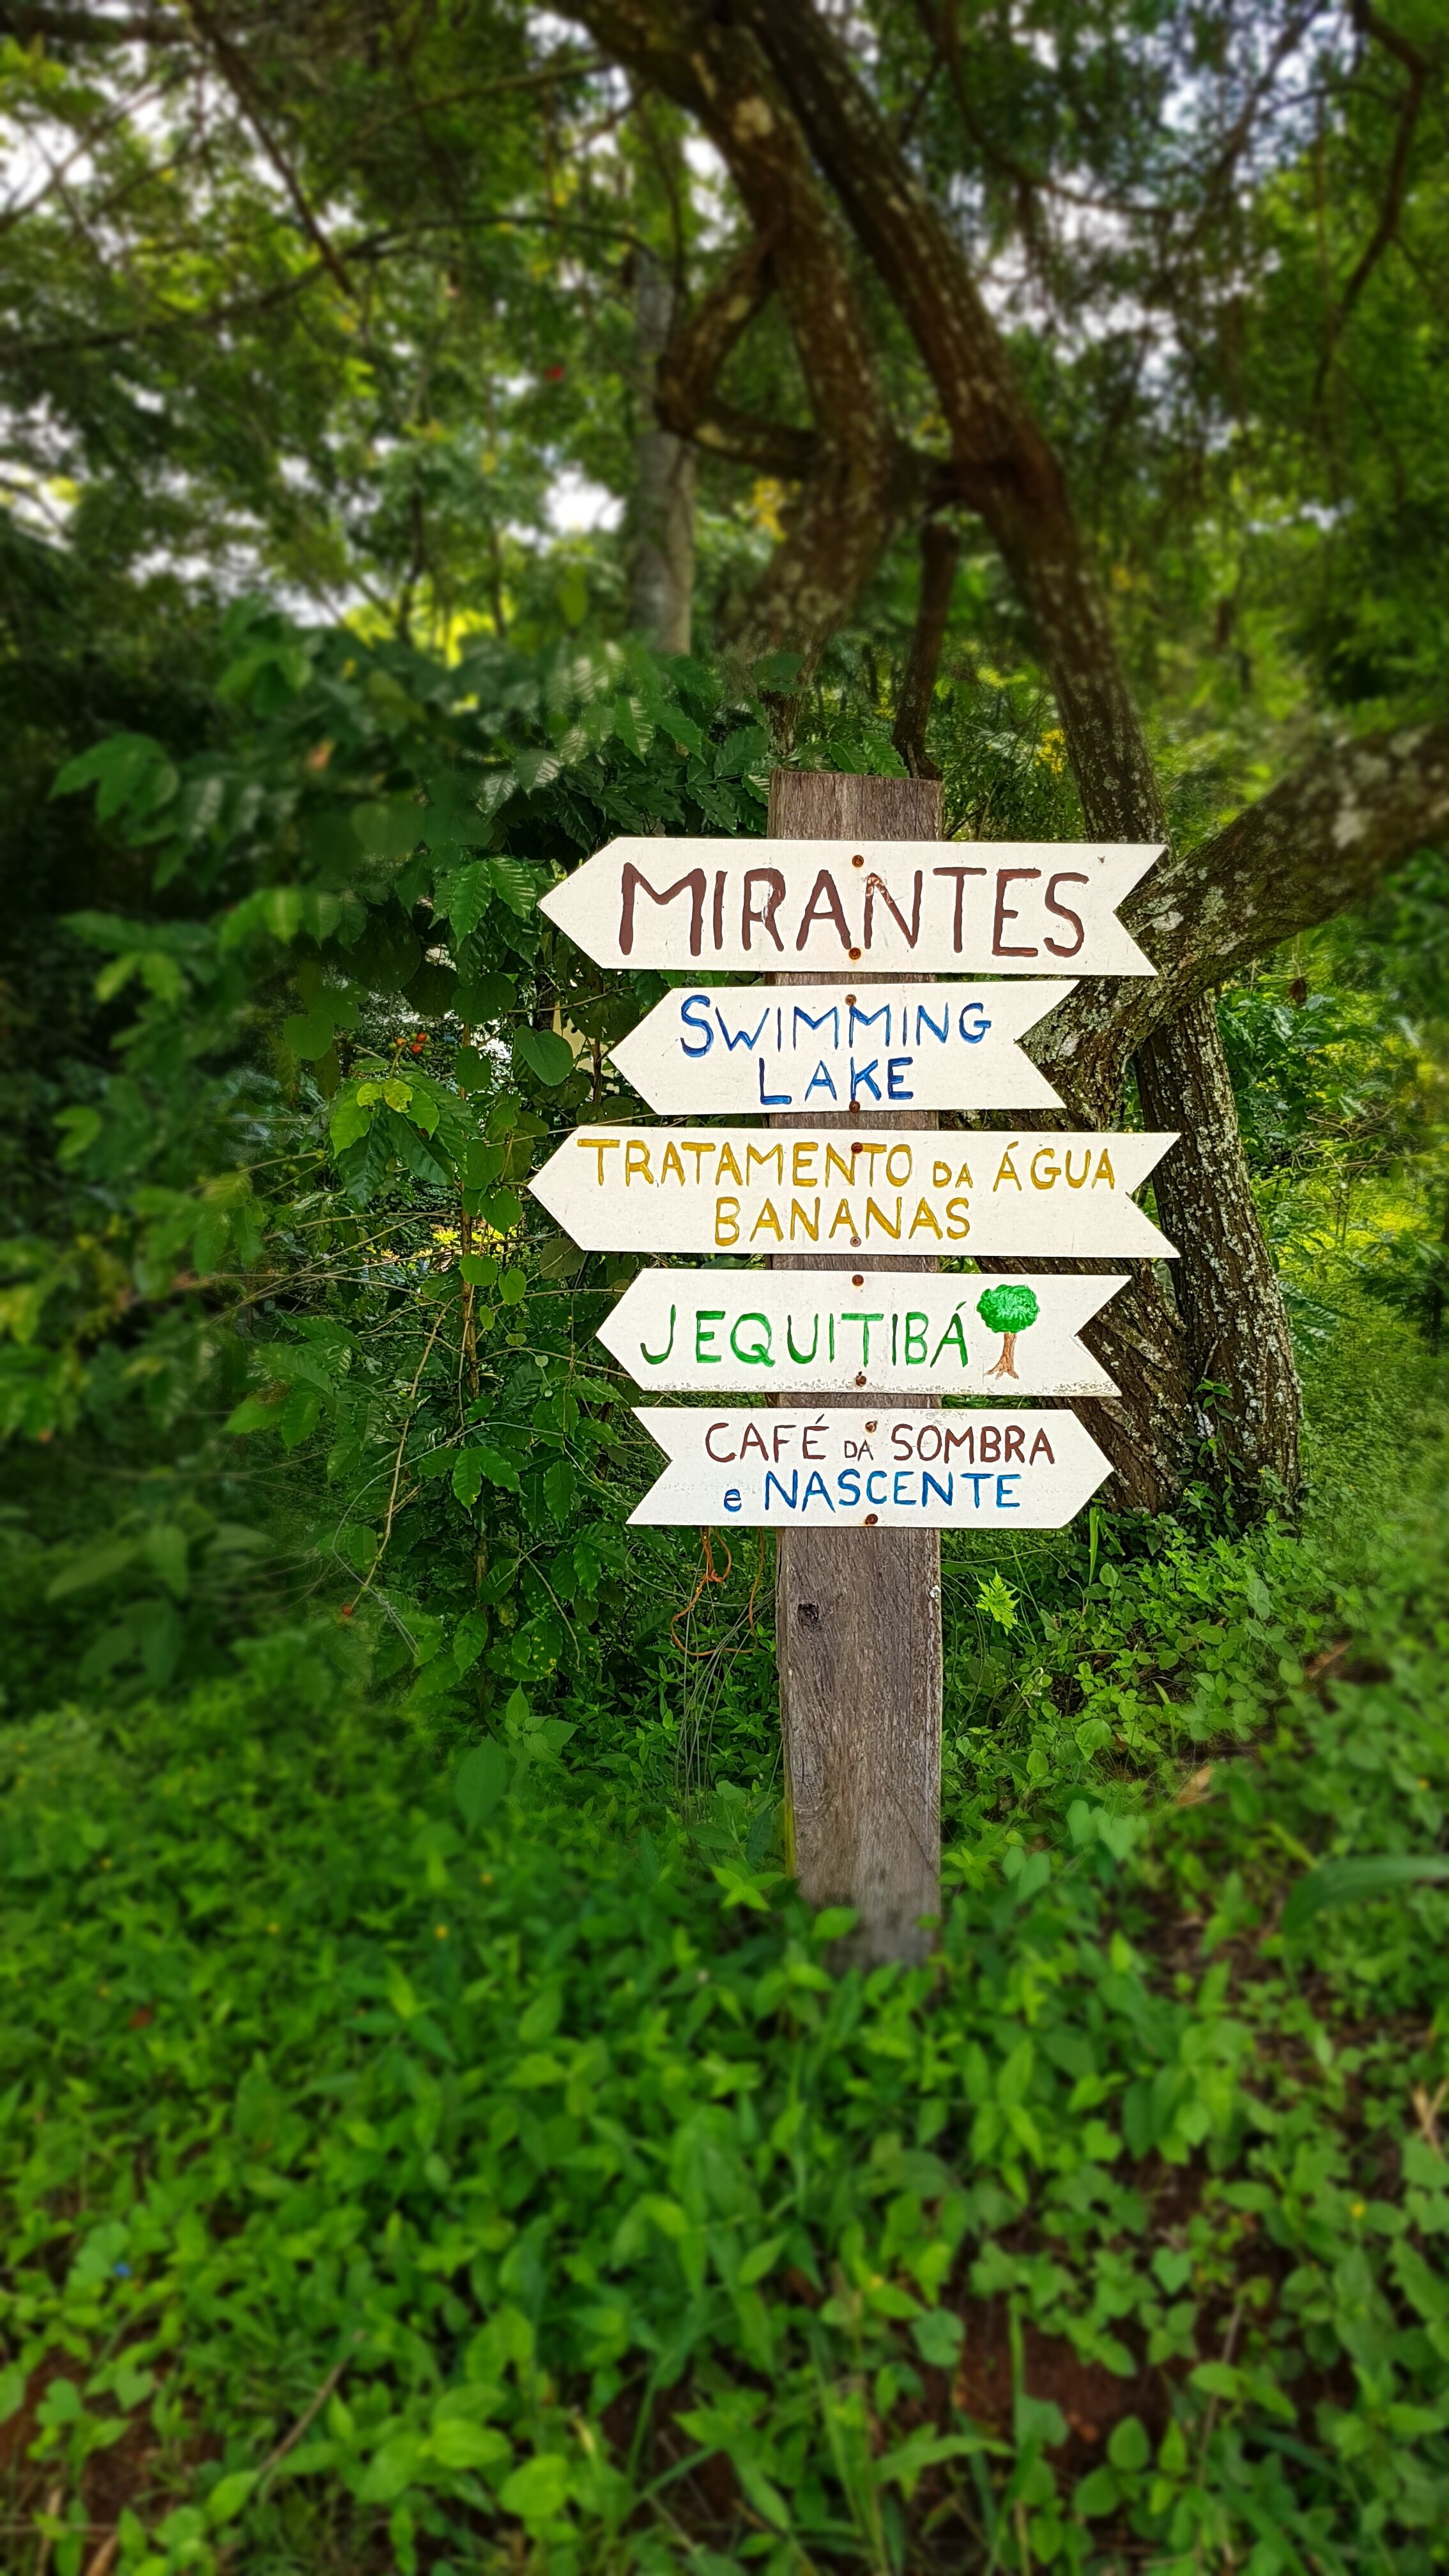 MIRANTES
SWIMMING
LAKE
TRATAMENTO DA ÁGUA
BANANAS
JEQUITIBÁ
CAFÉ DA SOMBRA
e NASCENTE